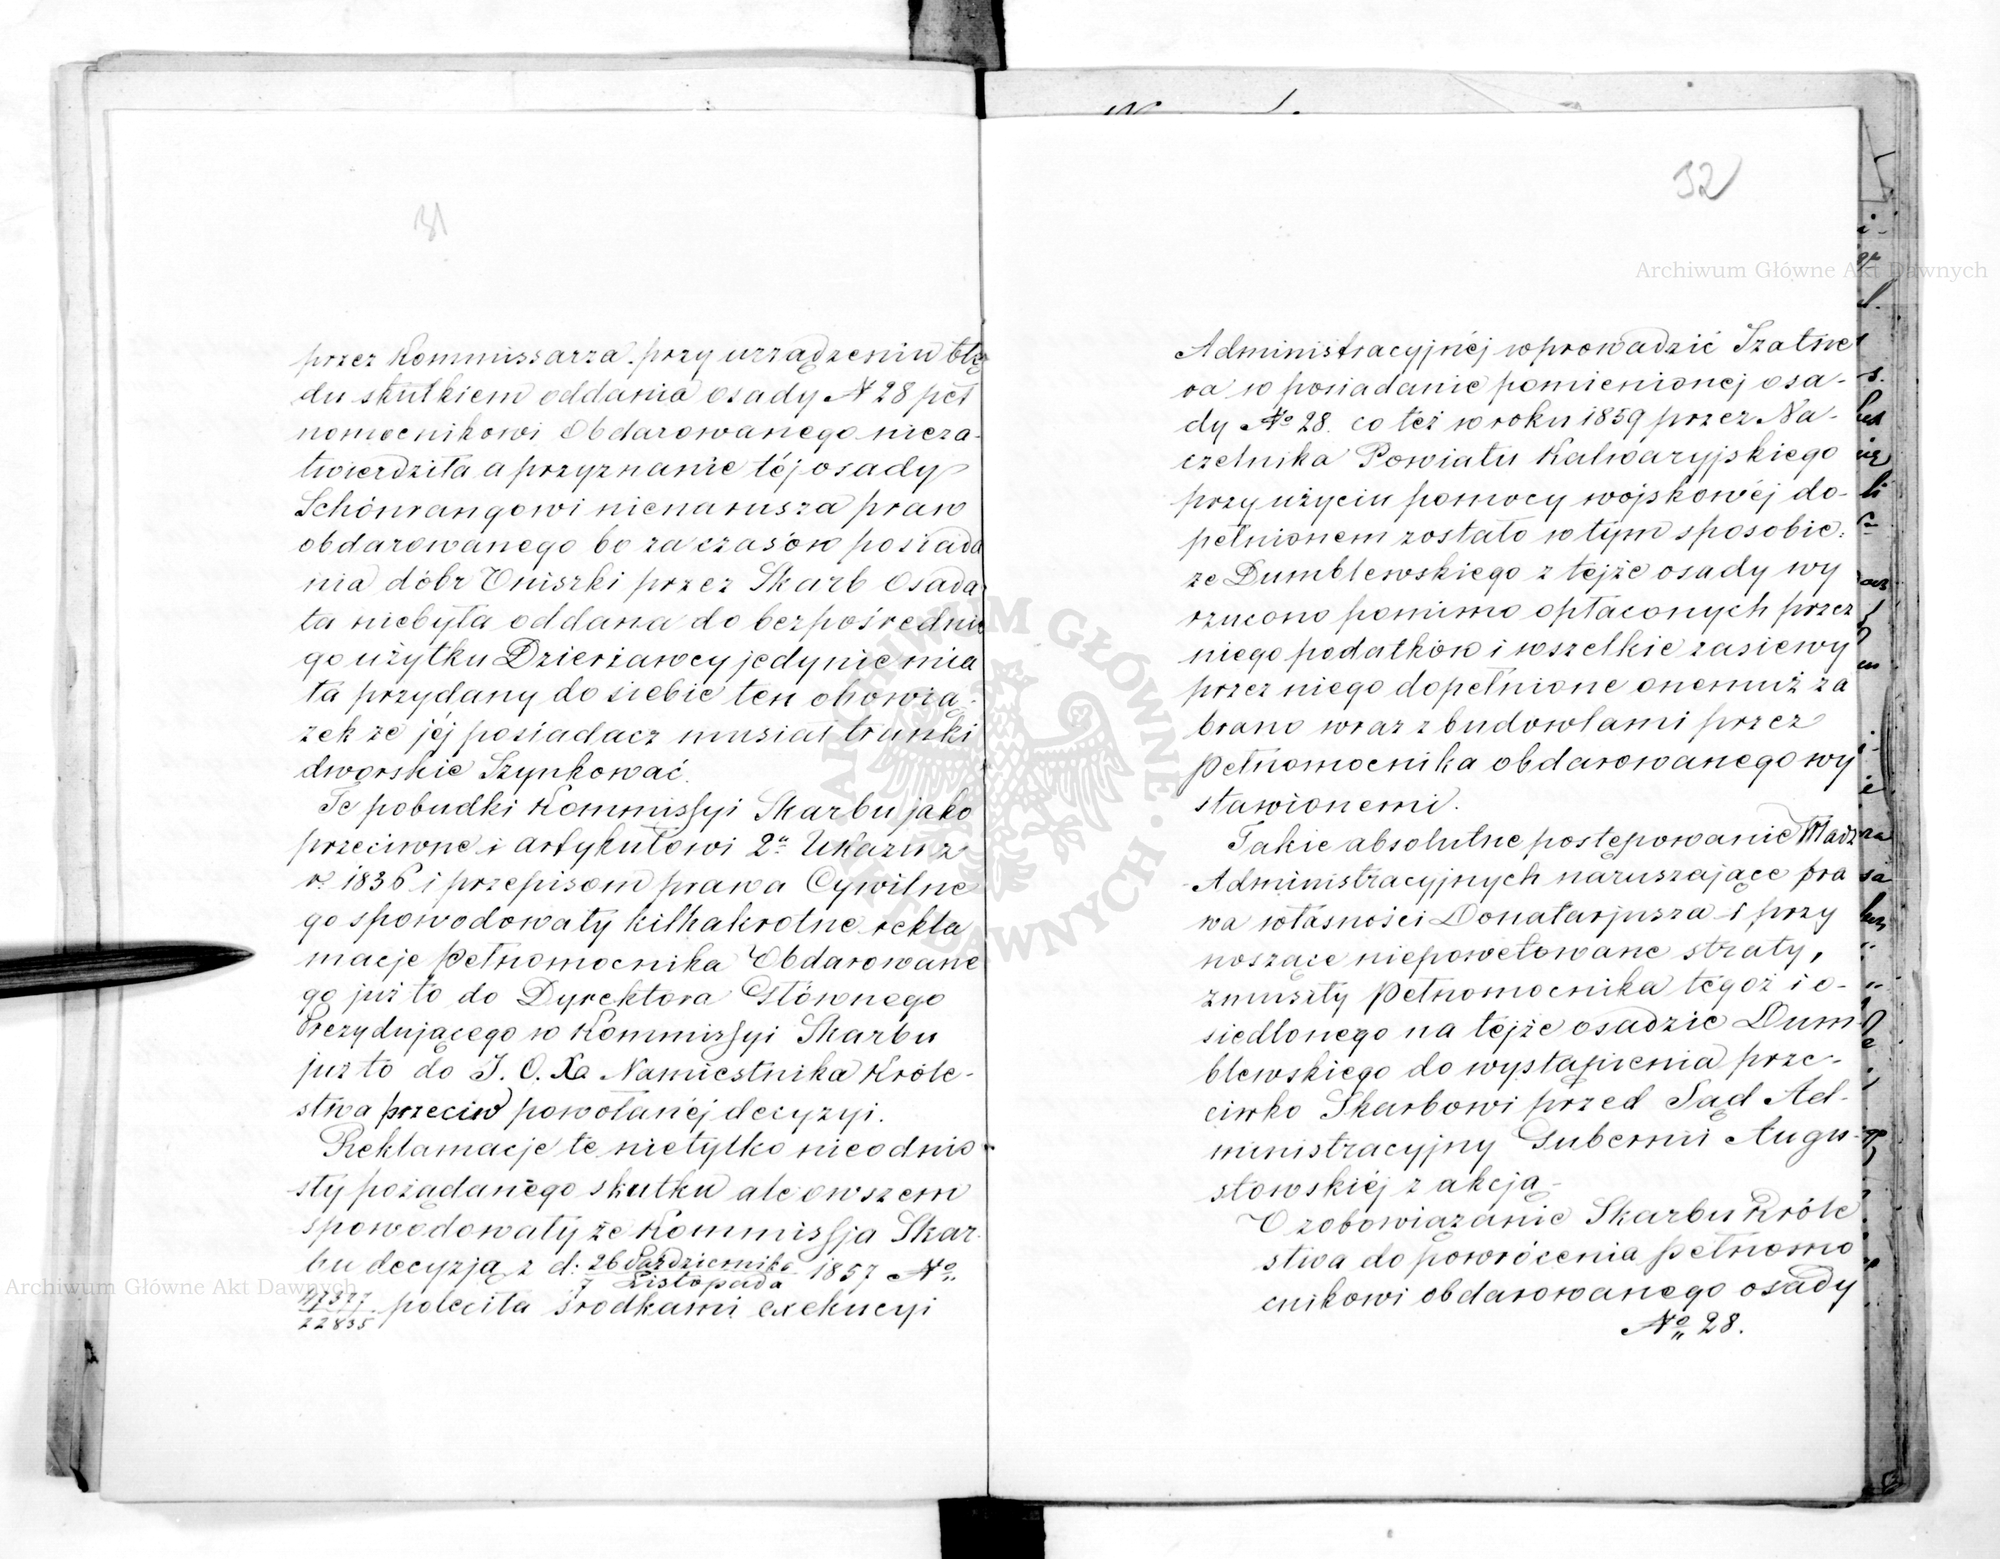 31
przez Kommissarza przy urządzeniu błę
du skutkiem oddania osady N 28 peł
nomocnikowi Obdarowanego nieza-
twierdziła a przyznanie téj osady
Schönrangowi nienarusza praw
obdarowanego bo za czasów posiada
nia dóbr Uniszki przez Skarb Osada
ta niebyła oddana do bezpośrednie
go użytku Dzierżawcy jedynie mia
ła przydany do siebie ten obowią-
zek że jéj posiadacz musiał trunki
dworskie Szynkować.
Te pobudki Kommissyi Skarbu jako
przeciwne i artykułowi 2º Ukazu z
r. 1836 i przepisom prawa Cywilne
go spowodowały kilkakrotne rekla
macje Pełnomocnika Obdarowane
go już to do Dyrektora Głównego
Prezydującego w Kommissyi Skarbu
już to do J. O. Xa Namiestnika Króle-
stwa przeciw powołanéj decyzyi.
Reklamacje te nietylko nieodnio
sły pożądanego skutku ale owszem
spowodowały że Kommissja Skar-
bu decyzją z d: 26 Października / 7 Listopada 1857 No
47377 / 22835 poleciła środkami exekucyi
32
Administracyjnéj wprowadzić Szatne
ra w posiadanie pomienionej osa-
dy No 28. co też w roku 1859 przez Na-
czelnika Powiatu Kalwaryjskiego
przy użyciu pomocy wojskowéj do-
pełnionem zostało w tym sposobie:
że Dumblewskiego z tejże osady wy
rzucono pomimo opłaconych przez
niego podatków i wszelkie zasiewy
przez niego dopełnione onemuż za
brano wraz z budowlami przez
Pełnomocnika obdarowanego wy
stawionemi.
Takie absolutne postępowanie Władz
Administracyjnych naruszające pra
wa własności Donatarjusza i przy
noszące niepowetowane straty,
zmusiły Pełnomocnika tegoż i o-
siedlonego na tejże osadzie Dum-
blewskiego do wystąpienia prze-
ciwko Skarbowi przed Sąd Ad-
ministracyjny Gubernii Augu-
stowskiéj z akcją-
O zobowiązanie Skarbu Króle
stwa do powrócenia pełnomo
cnikowi obdarowanego osady
No 28.
Archiwum Główne Akt Dawnych
Archiwum Główne Akt Dawnych
ARCHIWUM GŁÓWNE AKT DAWNYCH